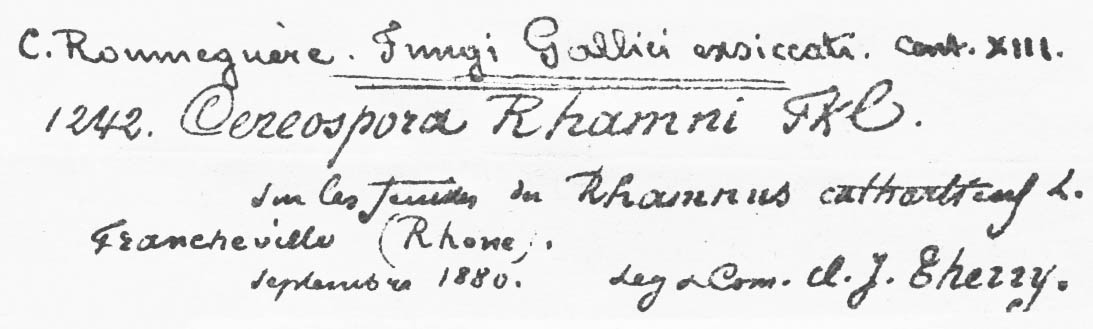 C. Roumeguère. Fungi Gallici exsiccati. Cent. XIII.
1242. Cercospora Rhamni FKl.
sur les feuilles du Rhamnus catharticus L.
Francheville (Rhone).
septembre 1880. Leg & Com. Cl. J. Therry.